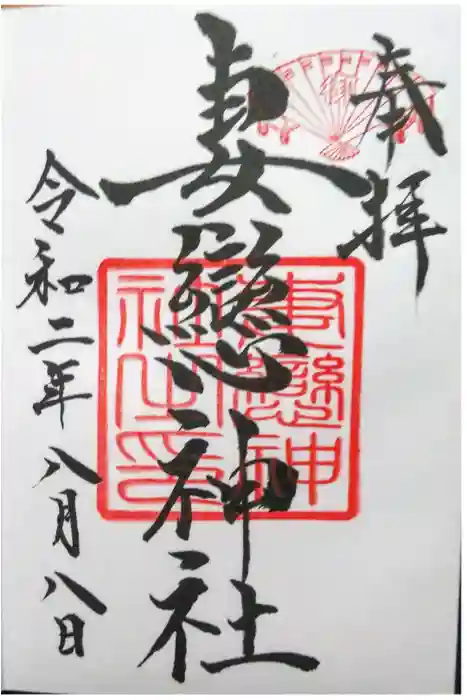 奉拝
妻戀神社
妻戀神社之印
令和二年八月八日